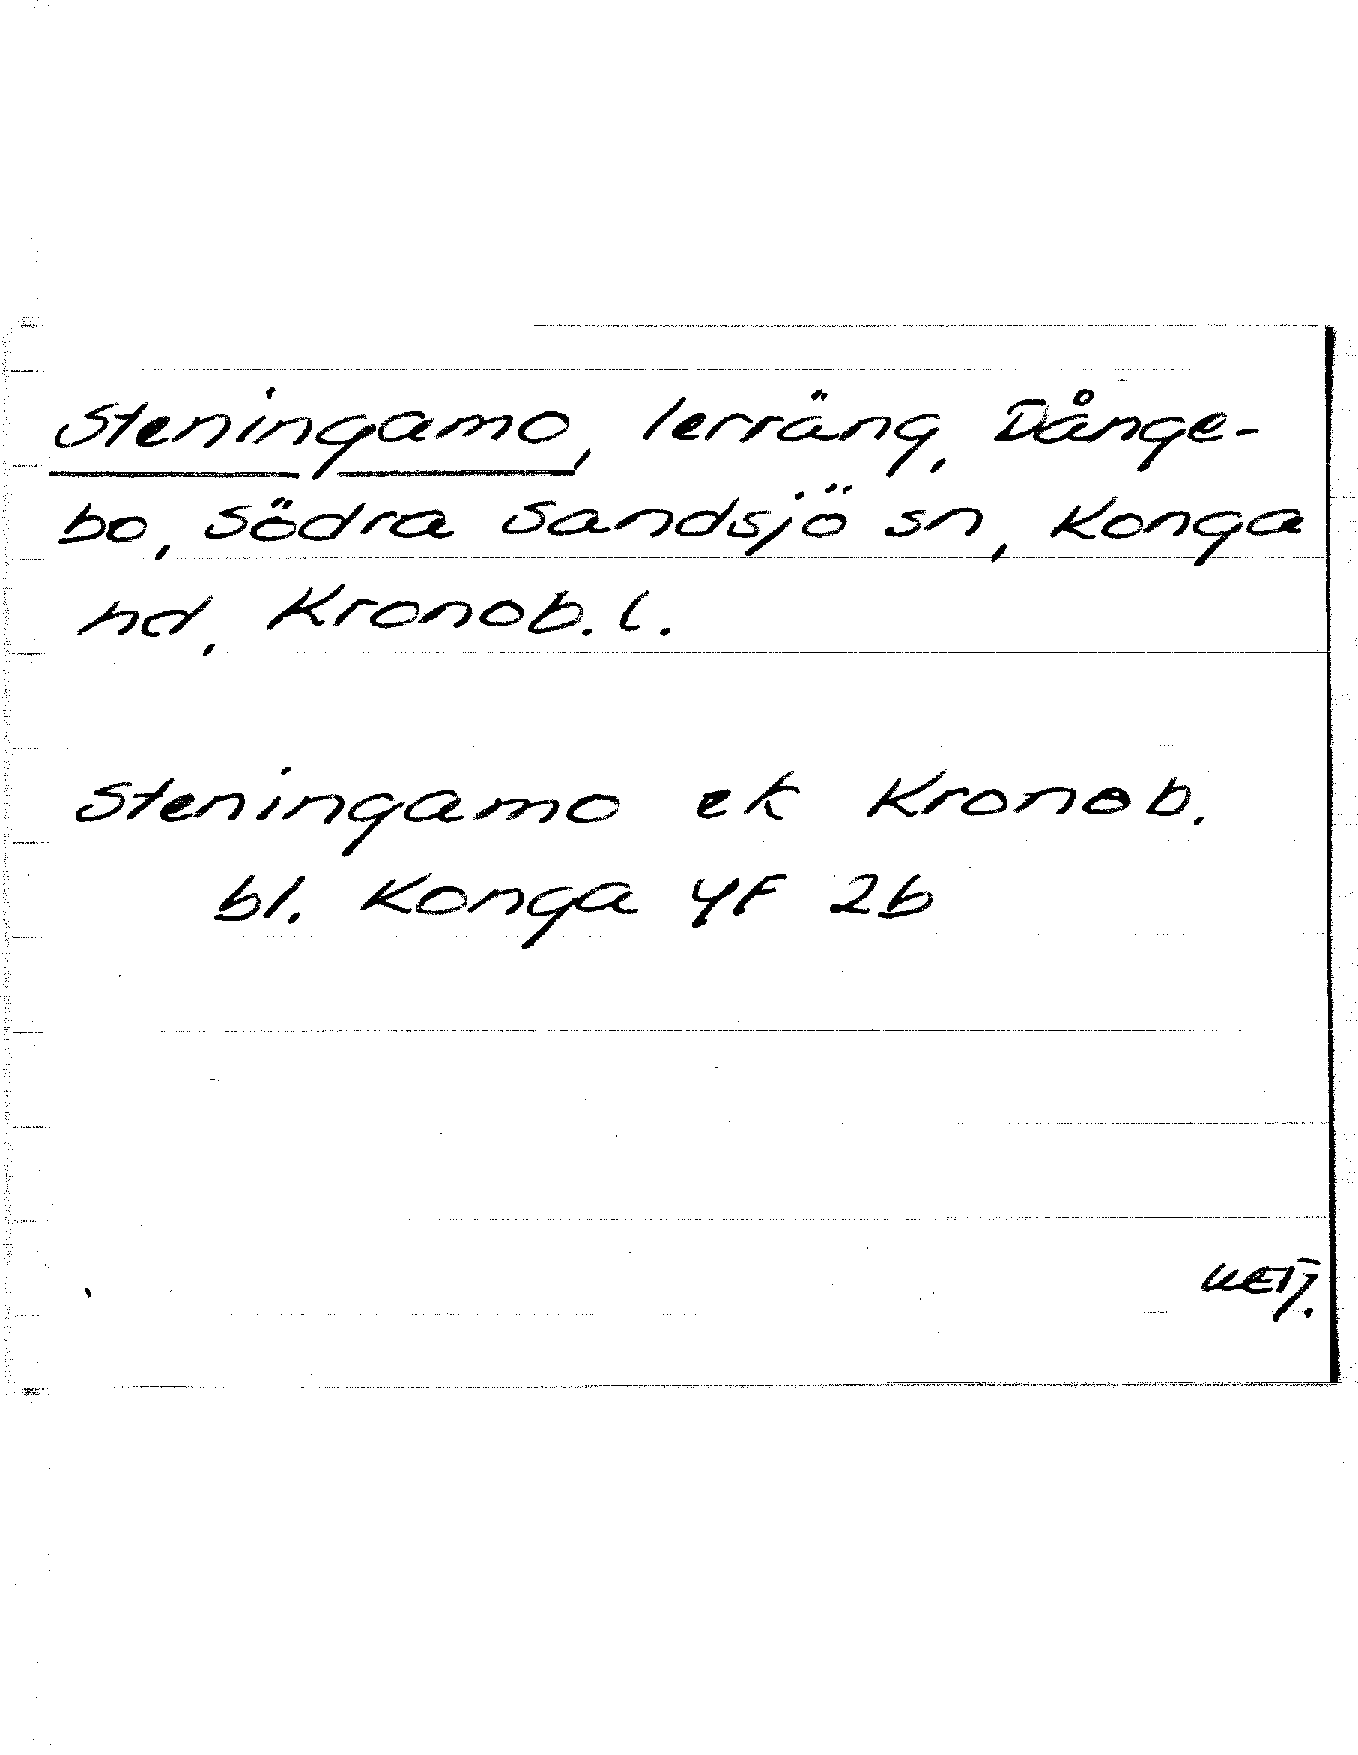 Steningamo, lerräng, Dånge-
bo, Södra Sandsjö sn, Konga
hd, Kronob. l.
Steningamo ek Kronob.
bl. Konga YF 2b